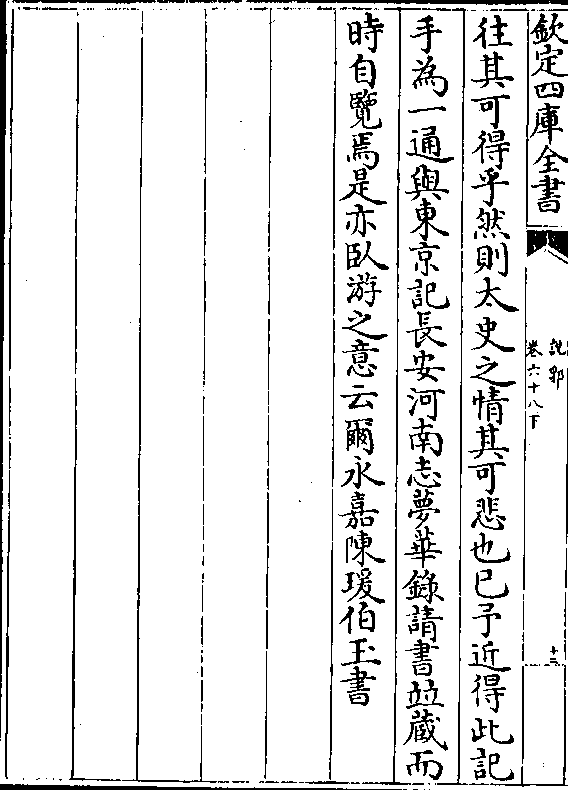 欽定四庫全書
說郛
卷六十八下
十三
往其可得乎然則太史之情其可悲也已予近得此記
手為一通與東京記長安河南志夢華錄請書並藏而
時自覽焉是亦臥游之意云爾永嘉陳瑗伯玉書